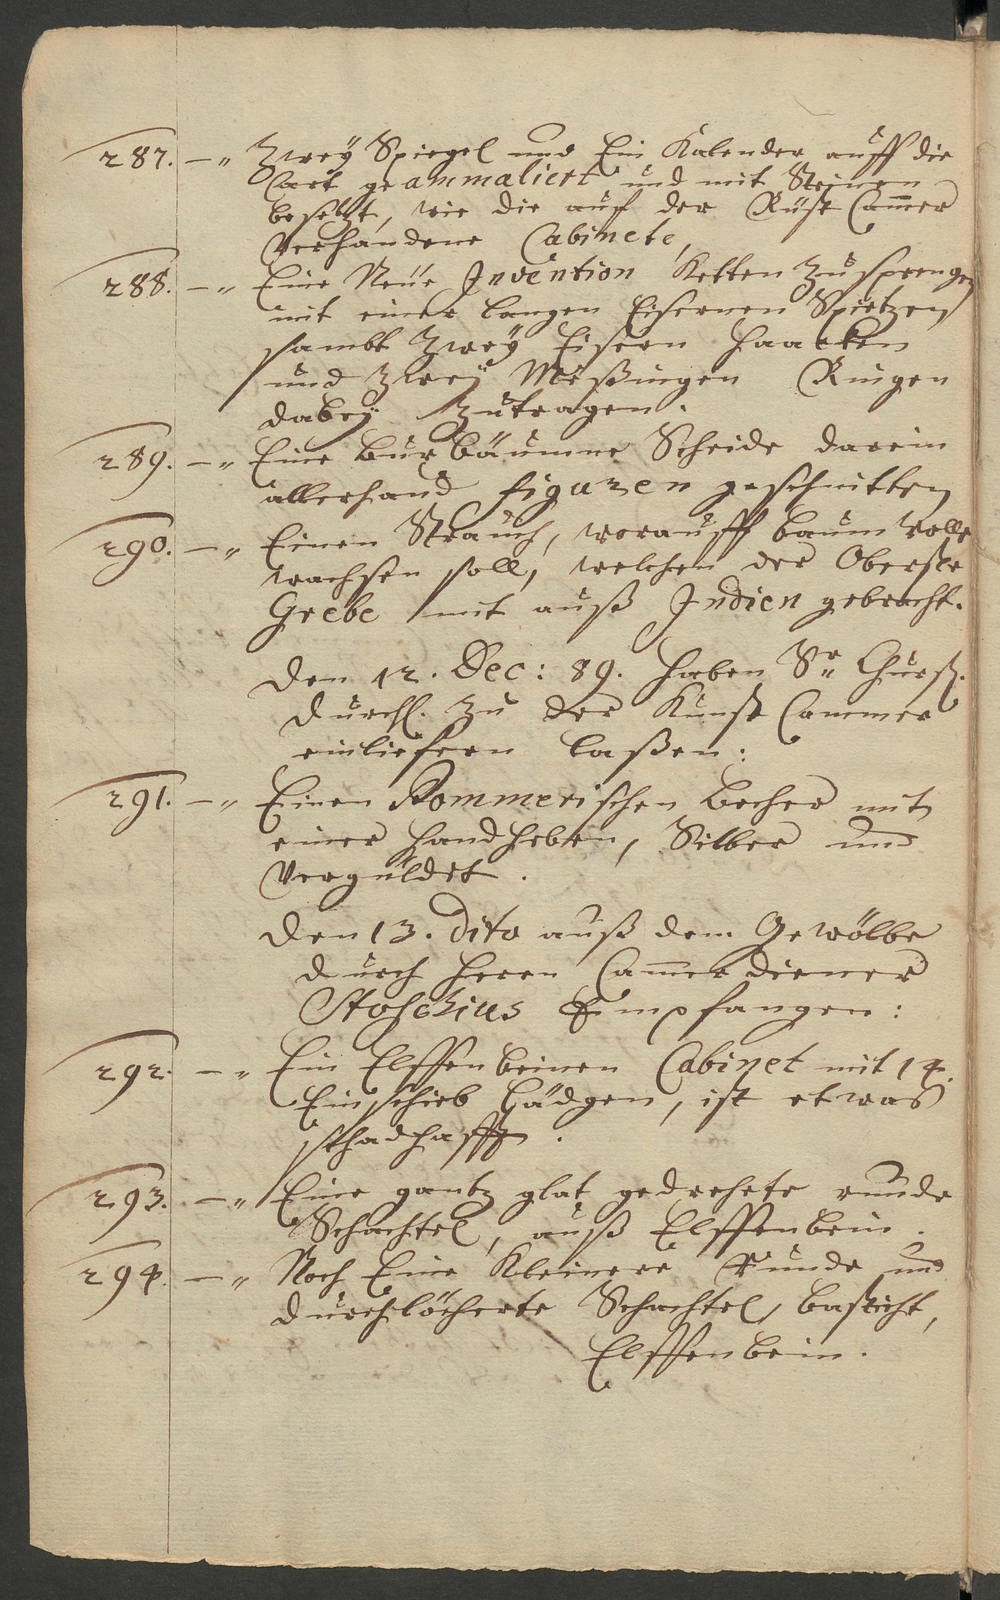 287. — „ Zwey Spiegel und Ein Kalender auff die
Art geammaliert und mit Steinen
besetzt, wie die auf der Rüst Cammer
verhandene Cabinete,
288. — „ Eine Neüe Invention Ketten Zusprengen
mit einer langen Eisernen Spietzen
sambt Zwey Eisern Haacken
und Zwey Meßingen Ringen
dabey Zutragen.
289. — „ Eine Buxbäumne Scheide darein
allerhand figuren geschnitten
290. — „ Einen Strauch, worauff baum Wolle
wachsen soll, welchen der Oberste
Grebe mit auß Indien gebracht.
Den 12. Dec: 89. haben Sr. Churf.
Durchl. Zu der Kunst Cammer
einliefern laßen:
291. — „ Einen Pommerischen Becher mit
einer Handheben, Silber und
Verguldet.
Den 13. dito auß dem Gewölbe
durch Herrn Cammerdiener
Stoschius Empfangen:
292. — „ Ein Elffenbeinen Cabinet mit 14.
Einschieb Lädgen, ist etwas
schadhafft.
293. — „ Eine gantz glat gedrehete runde
Schachtel, auß Elffenbein.
294. — „ Noch Eine Kleinere Runde und
durchlöcherte Schachtel,
Elffenbein.